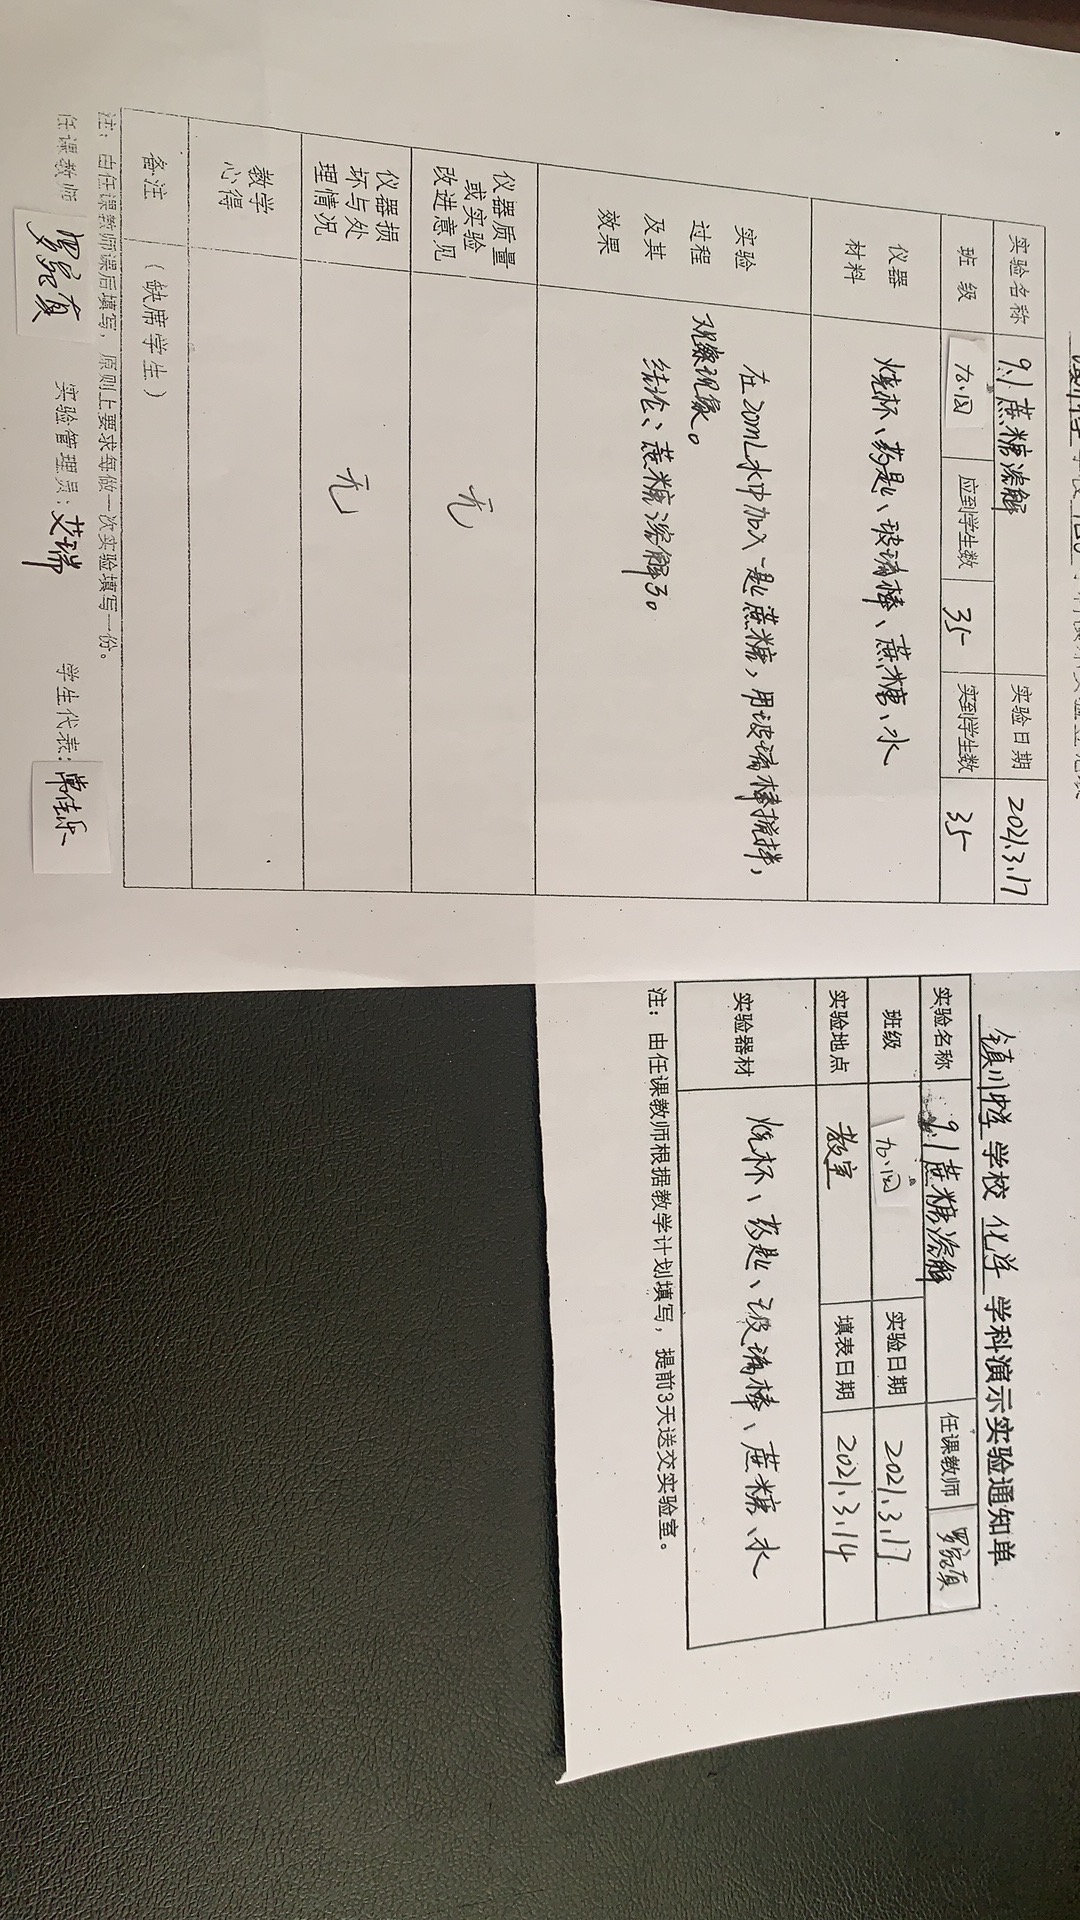 实验名称 9.1蔗糖溶解 实验日期 2021.3.17
班 级 九.四 应到学生数 35 实到学生数 35
仪器
材料
烧杯、药匙、玻璃棒、蔗糖、水
实验
过程
及其
效果
在20mL水中加入一匙蔗糖，用玻璃棒搅拌，
观察现象。
结论：蔗糖溶解了。
仪器质量
或实验
改进意见
无
仪器损
坏与处
理情况
无
教学
心得
备注 （缺席学生）
注：由任课教师课后填写，原则上要求每做一次实验填写一份。
任课教师 实验管理员：艾瑞 学生代表：
镇川中学 学校 化学 学科演示实验通知单
实验名称 9.1蔗糖溶解 任课教师
班级 九.四 实验日期 2021.3.17
实验地点 教室 填表日期 2021.3.14
实验器材 烧杯、药匙、玻璃棒、蔗糖、水
注：由任课教师根据教学计划填写，提前3天送交实验室。